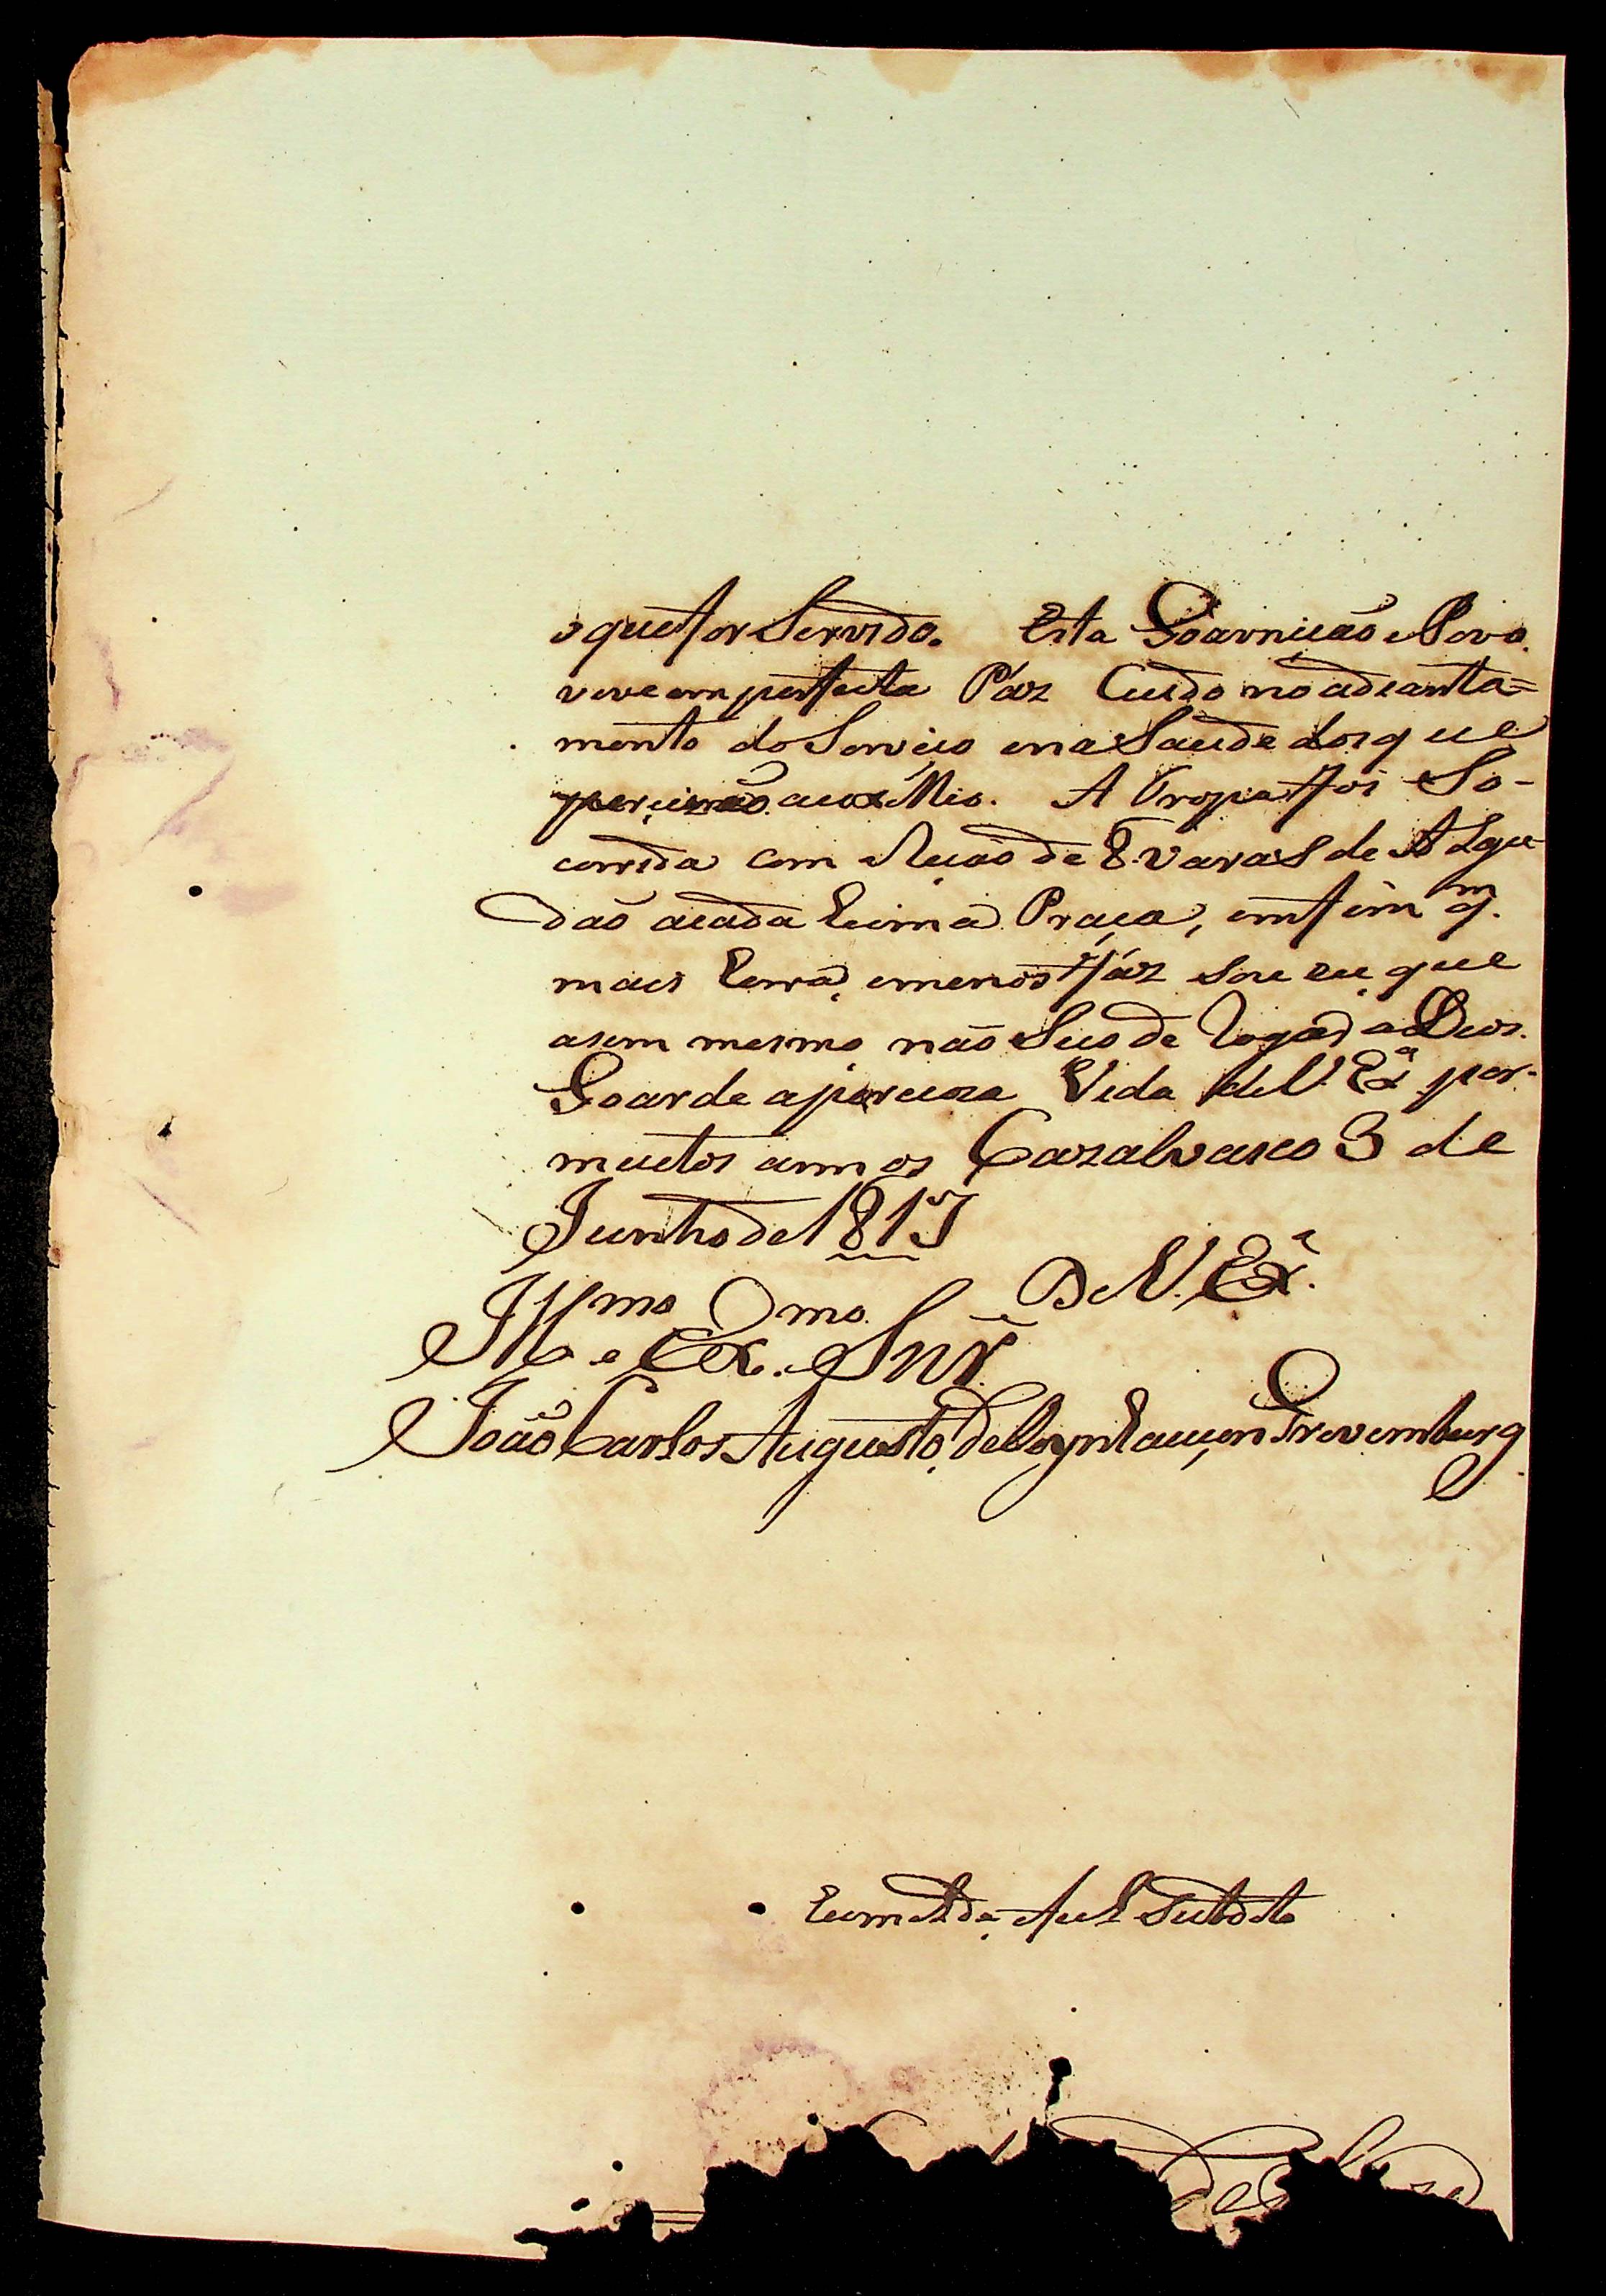 o que for Servido. Esta Goarnicaõ e Povo.
vive em perfeita Páz Cuido no adianta=
mento do Serviço e na Saude dos que
percizaõ auxilio. A Tropa foi So-
corrida com Raçaõ de 8 varas de Algu-
daõ a cada huma Praça, emfim q.
mais Erra, e menos fáz sou eu, que
asim mesmo naõ Seço de rogar a Deos.
Goarde a perciosa Vida de V. Exª por
muitos annos Cazalvasco 3 de
Junho de 1817
De V. Exª.
Illmo e Exmo. Snr.
João Carlos Augusto de Oeynhauzen Grevemburg
humilde Subdito